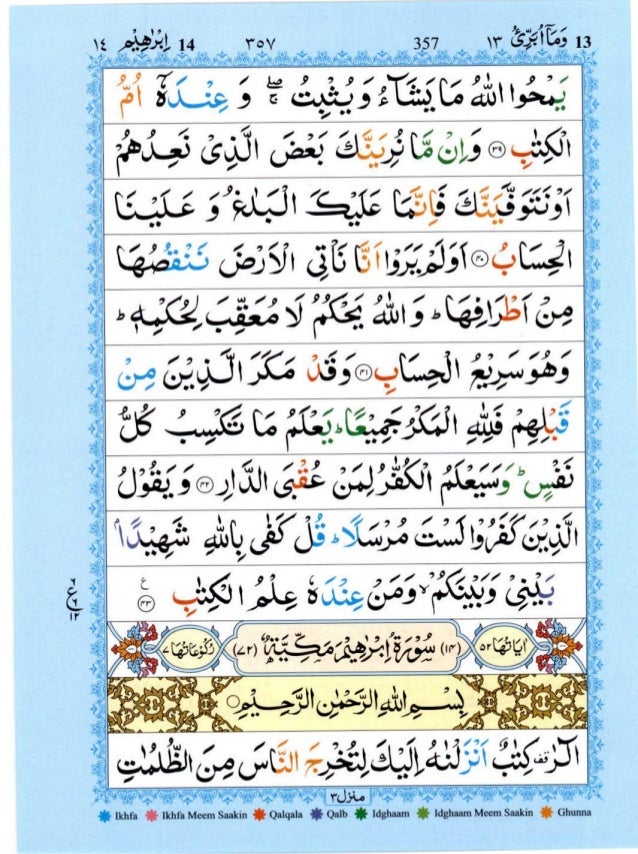 وَمَآ اُبَرِّئُ ۱۳ 13 357 ۳۵۷ 14 اِبْرٰهِيْم ۱۴
يَمْحُوا اللّٰهُ مَا يَشَآءُ وَيُثْبِتُ ۖۚ وَ عِنْدَهٗٓ اُمُّ
الْكِتٰبِ ﴿۳۹﴾ وَاِنْ مَّا نُرِيَنَّكَ بَعْضَ الَّذِىْ نَعِدُهُمْ
اَوْ نَتَوَفَّيَنَّكَ فَاِنَّمَا عَلَيْكَ الْبَلٰغُ وَ عَلَيْنَا
الْحِسَابُ ﴿۴۰﴾ اَوَلَمْ يَرَوْا اَنَّا نَاْتِى الْاَرْضَ نَنْقُصُهَا
مِنْ اَطْرَافِهَا ؕ وَ اللّٰهُ يَحْكُمُ لَا مُعَقِّبَ لِحُكْمِهٖ ؕ
وَهُوَ سَرِيْعُ الْحِسَابِ ﴿۴۱﴾ وَقَدْ مَكَرَ الَّذِيْنَ مِنْ
قَبْلِهِمْ فَلِلّٰهِ الْمَكْرُ جَمِيْعًا ؕ يَعْلَمُ مَا تَكْسِبُ كُلُّ
نَفْسٍ ؕ وَسَيَعْلَمُ الْكُفّٰرُ لِمَنْ عُقْبَى الدَّارِ ﴿۴۲﴾ وَ يَقُوْلُ
الَّذِيْنَ كَفَرُوْا لَسْتَ مُرْسَلًا ؕ قُلْ كَفٰى بِاللّٰهِ شَهِيْدًۢا
بَيْنِىْ وَبَيْنَكُمْ ۙ وَمَنْ عِنْدَهٗ عِلْمُ الْكِتٰبِ ﴿۴۳﴾ ع
۶ ع ۶ ۱۲
اٰيَاتُهَا ۵۲ (۱۴) سُوْرَةُ اِبْرٰهِيْمَ مَكِّيَّةٌ (۷۲) رُكُوْعَاتُهَا ۷
بِسْمِ اللّٰهِ الرَّحْمٰنِ الرَّحِيْمِ
الٓرٰ ۟ قف كِتٰبٌ اَنْزَلْنٰهُ اِلَيْكَ لِتُخْرِجَ النَّاسَ مِنَ الظُّلُمٰتِ
منزل ۳
Ikhfa Ikhfa Meem Saakin Qalqala Qalb Idghaam Idghaam Meem Saakin Ghunna